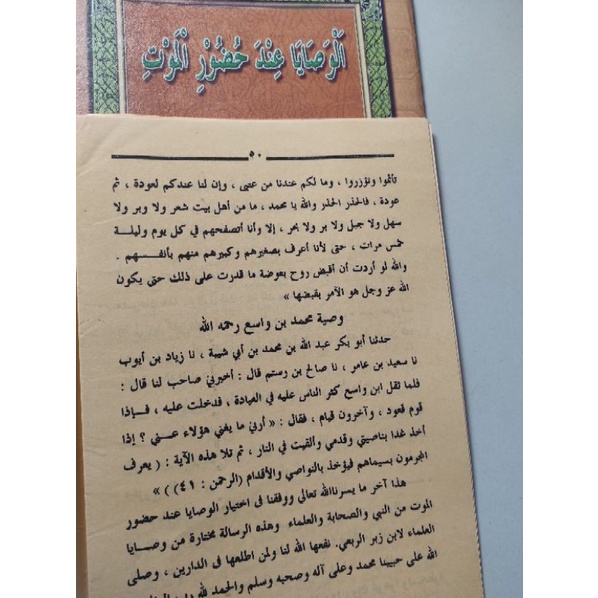 الْوَصَايَا عِنْدَ حُضُوْرِ الْمَوْتِ
٥٠
تأثموا وتؤزروا ، وما لكم عندنا من عتبى ، وإن لنا عندكم لعودة ، ثم
عودة ، فالحذر الحذر والله يا محمد ، ما من أهل بيت شعر ولا وبر ولا
سهل ولا جبل ولا بر ولا بحر ، إلا وأنا أتصفحهم في كل يوم وليلة
خمس مرات ، حتى لأنا أعرف بصغيرهم وكبيرهم منهم بأنفسهم .
والله لو أردت أن أقبض روح بعوضة ما قدرت على ذلك حتى يكون
الله عز وجل هو الآمر بقبضها »
وصية محمد بن واسع رحمه الله
حدثنا أبو بكر عبد الله بن محمد بن أبي شيبة ، نا زياد بن أيوب
نا سعيد بن عامر ، نا صالح بن رستم قال : أخبرني صاحب لنا قال :
فلما ثقل ابن واسع كثر الناس عليه في العيادة ، فدخلت عليه ، فإذا
قوم قعود ، وآخرون قيام ، فقال : « أرني ما يغني هؤلاء عني ؟ إذا
أخذ غدا بناصيتي وقدمي وألقيت في النار ، ثم تلا هذه الآية : ( يعرف
المجرمون بسيماهم فيؤخذ بالنواصي والأقدام (الرحمن : ٤١) ) »
هذا آخر ما يسرنا الله تعالى ووفقنا فى اختيار الوصايا عند حضور
الموت من النبي والصحابة والعلماء وهذه الرسالة مختارة من وصايا
العلماء لابن زبر الربعي. نفعها الله لنا ولمن اطلعها فى الدارين ، وصلى
الله على حبيبنا محمد وعلى آله وصحبه وسلم والحمد لله